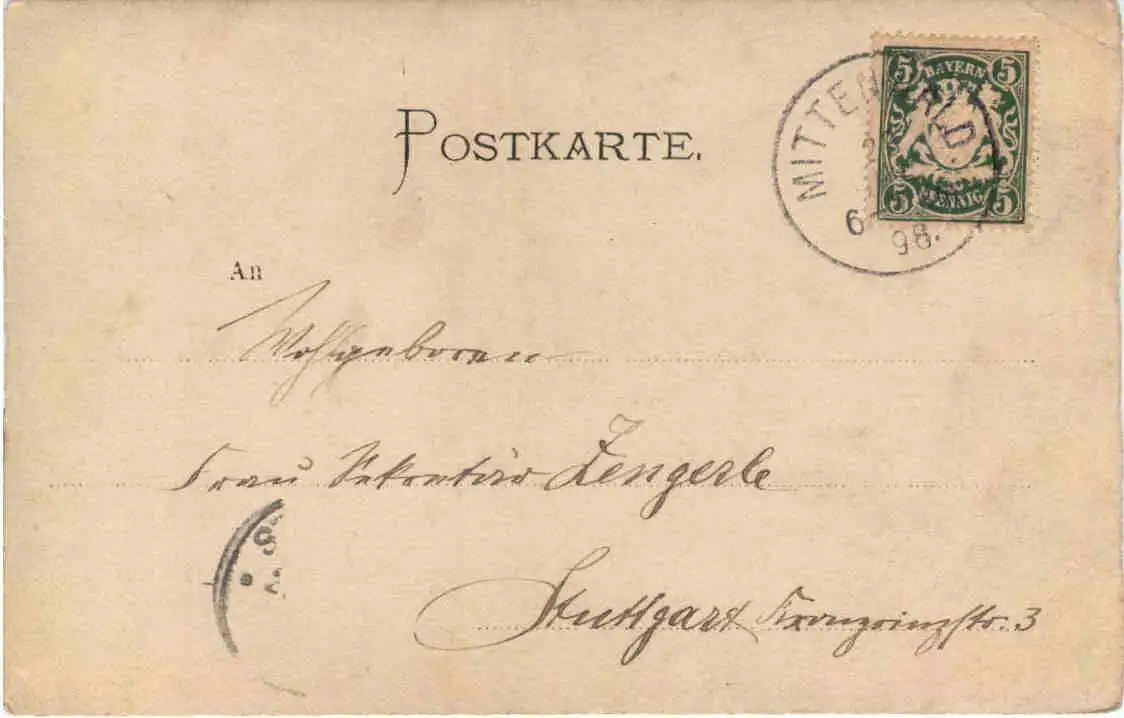 POSTKARTE.
5 BAYERN 5
5 PFENNIG 5
MITTENWALD.
6 98.
An
Wohlgeboren
Frau Sekretär Zengerle
Stuttgart Kronprinzstr. 3